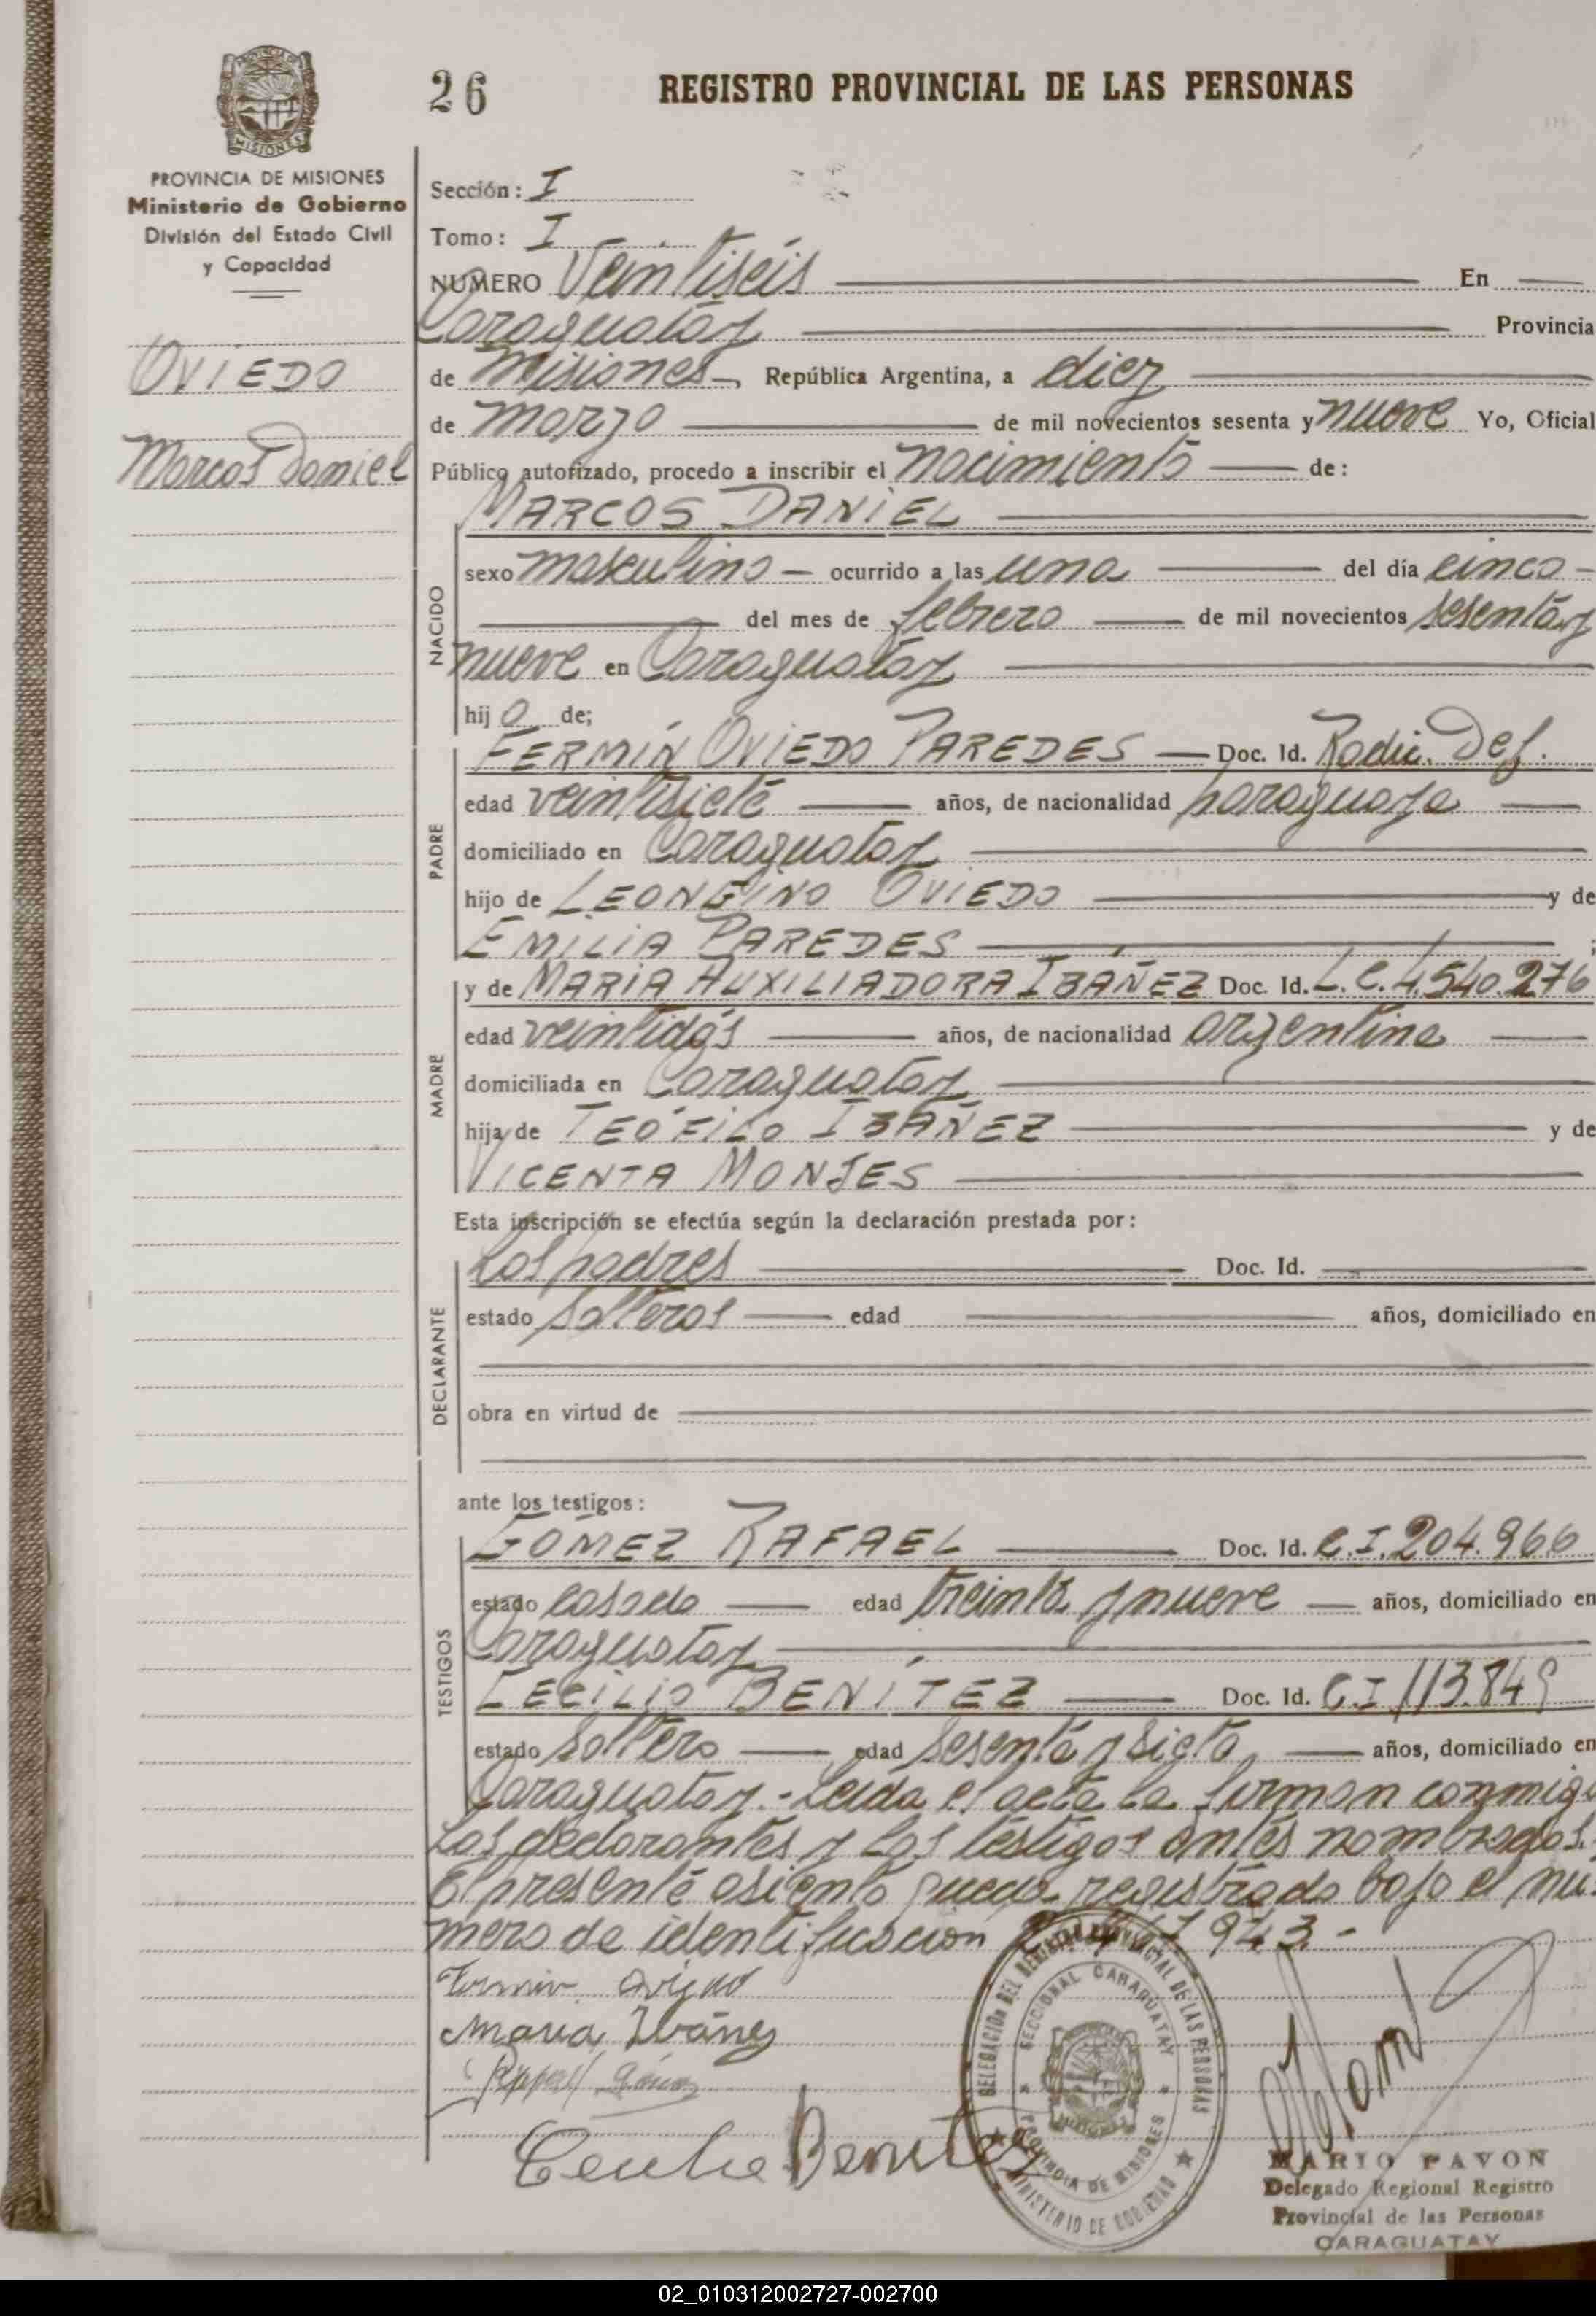 26
REGISTRO PROVINCIAL DE LAS PERSONAS
MISIONES
PROVINCIA DE MISIONES
Ministerio de Gobierno
División del Estado Civil
y Capacidad
OVIEDO
Marcos Daniel
Sección: I
Tomo: I
NUMERO Veintiséis En
Caraguatay Provincia
de Misiones República Argentina, a diez
de marzo de mil novecientos sesenta y nueve Yo, Oficial
Público autorizado, procedo a inscribir el nacimiento de:
NACIDO
MARCOS DANIEL
sexo masculino ocurrido a las una del día cinco
del mes de febrero de mil novecientos sesenta y
nueve en Caraguatay
hijo de;
PADRE
FERMÍN OVIEDO PAREDES Doc. Id. Radic. Def.
edad veintisiete años, de nacionalidad paraguaya
domiciliado en Caraguatay
hijo de LEONGINO OVIEDO y de
EMILIA PAREDES ;
MADRE
y de MARIA AUXILIADORA IBAÑEZ Doc. Id. L.C. 4.540.276
edad veintidós años, de nacionalidad argentina
domiciliada en Caraguatay
hija de TEÓFILO IBAÑEZ y de
VICENTA MONJES
Esta inscripción se efectúa según la declaración prestada por:
DECLARANTE
Los padres Doc. Id.
estado solteros edad años, domiciliado en
obra en virtud de
ante los testigos:
TESTIGOS
GOMEZ RAFAEL Doc. Id. C.I. 204.966
estado casado edad treinta y nueve años, domiciliado en
Caraguatay
CECILIO BENÍTEZ Doc. Id. C.I. 113.849
estado soltero edad sesenta y siete años, domiciliado en
Caraguatay.- Leida el acta la firman conmigo
los declarantes y los testigos antes nombrados.
El presente asiento queda registrado bajo el nú-
mero de identificación 943.-
Fermin Oviedo
Maria Ibáñez
Rafael Gómez
Cecilio Benitez
DELEGACION DEL REGISTRO PROVINCIAL DE LAS PERSONAS
SECCIONAL CARAGUATAY
PROVINCIA DE MISIONES
MINISTERIO DE GOBIERNO
MARIO PAVON
Delegado Regional Registro
Provincial de las Personas
CARAGUATAY
02_010312002727-002700